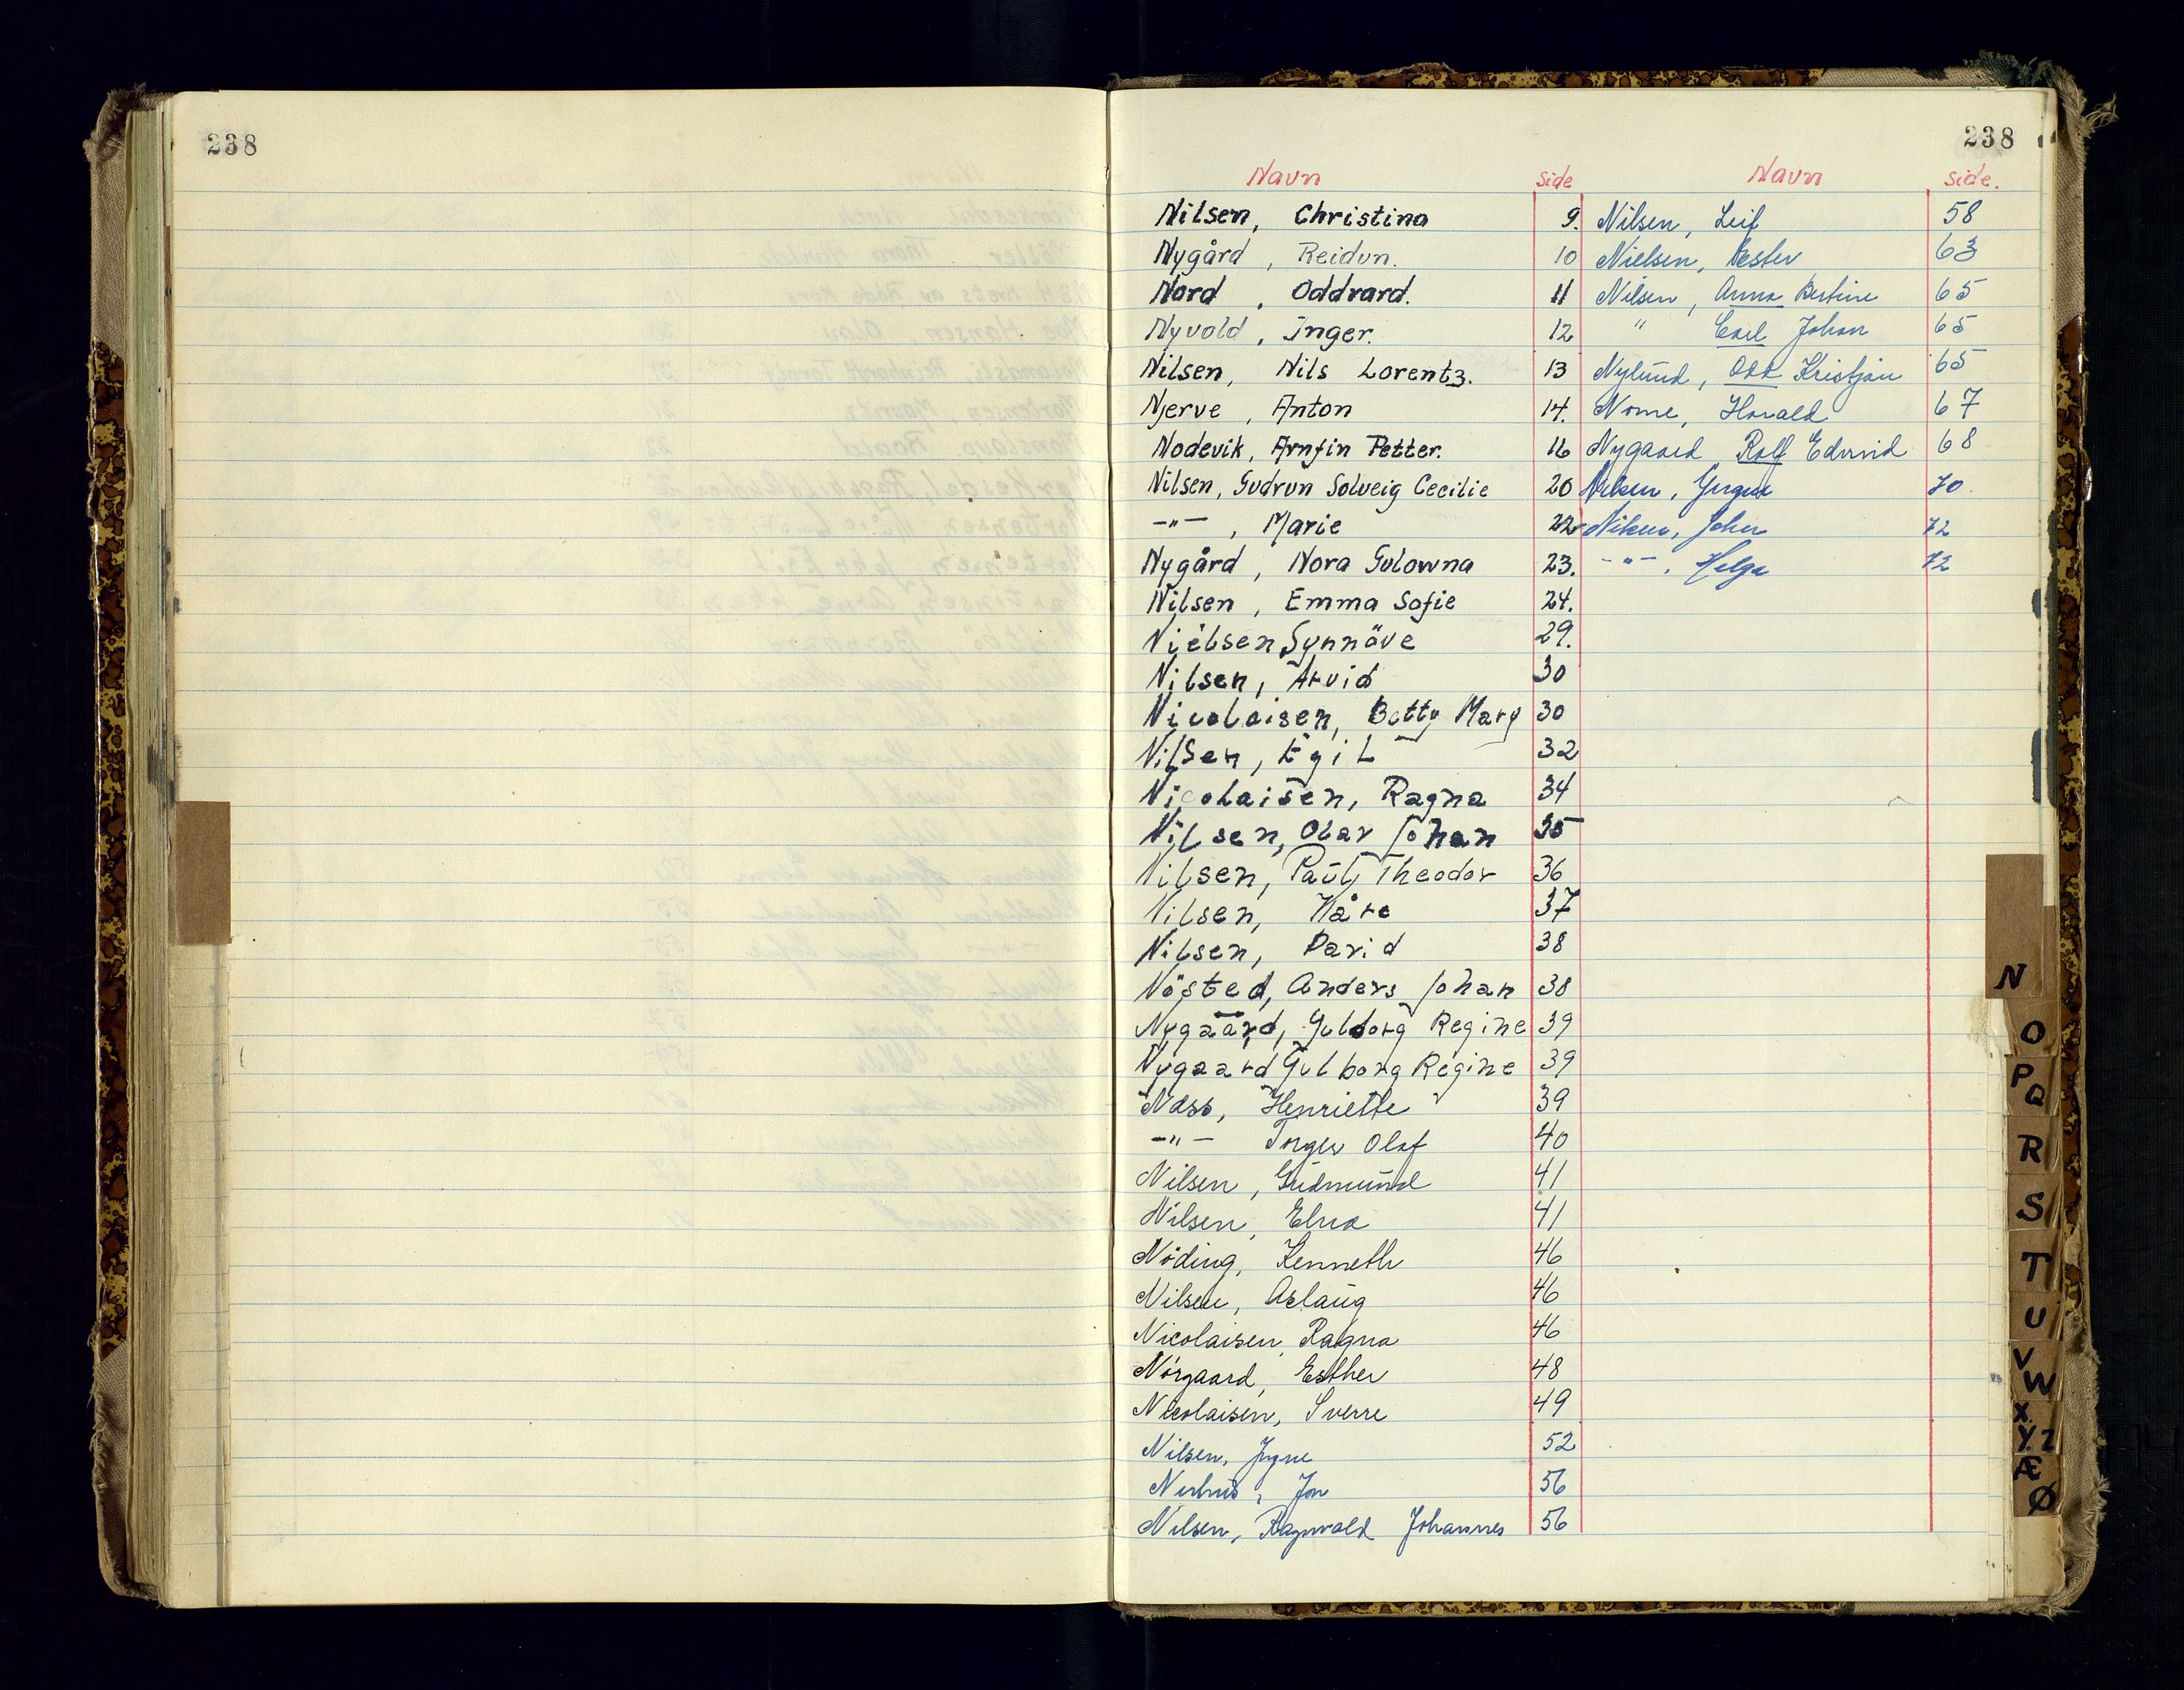 238
238
Navn side Navn side.
Nilsen, Christina 9. Nilsen, Leif 58
Nygård, Reidun. 10 Nielsen, Nestev 63
Nord, Oddvard. 11 Nilsen, Anna Bertine 65
Nyvold, Inger. 12 " Carl Johan 65
Nilsen, Nils Lorentz. 13 Nylund, Odd Kristjan 65
Njerve, Anton 14. Nome, Harald 67
Nodevik, Arnfin Petter. 16 Nygaard Rolf Edvind 68
Nilsen, Gudrun Solveig Cecilie 20 Nilsen, Yngvar 70.
-"- , Marie 22 Nilsen, John 72
Nygård, Nora Gulowna 23. -"-, Helga 72
Nilsen, Emma Sofie 24.
Nielsen Synnöve 29.
Nilsen, Arvid 30
Nicolaisen, Betty Mary 30
Nilsen, Egil 32
Nicolaisen, Ragna 34
Nilsen, Olav Johan 35
Nilsen, Paul Theodor 36
Nilsen, Kåre 37
Nilsen, David 38
Nösted, Anders Johan 38
Nygaard, Gulborg Regine 39
Nygaard Gulborg Regine 39
Næss, Henriette 39
-"- Inger Olaf 40
Nilsen, Gudmund 41
Nilsen, Elna 41
Nöding, Kenneth 46
Nilsen, Aslaug 46
Nicolaisen, Ragna 46
Nörgaard, Esther 48
Nicolaisen, Sverre 49
Nilsen, Yngve 52
Jon 56
Nilsen, Ragnvald Johannes 56
N
O
P
Q
R
S
T
U
V
W
X
Y.Z
Æ
Ø